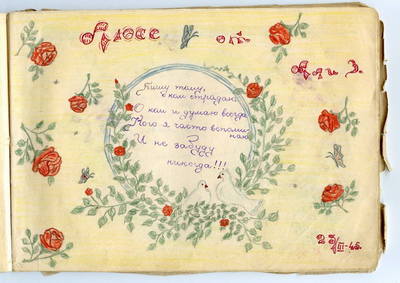 Люсе от
Али З.
Пишу тому,
о ком страдаю
О ком и думаю всегда
Кого я часто вспоми-
наю
И не забуду
никогда!!!
23/III-45.